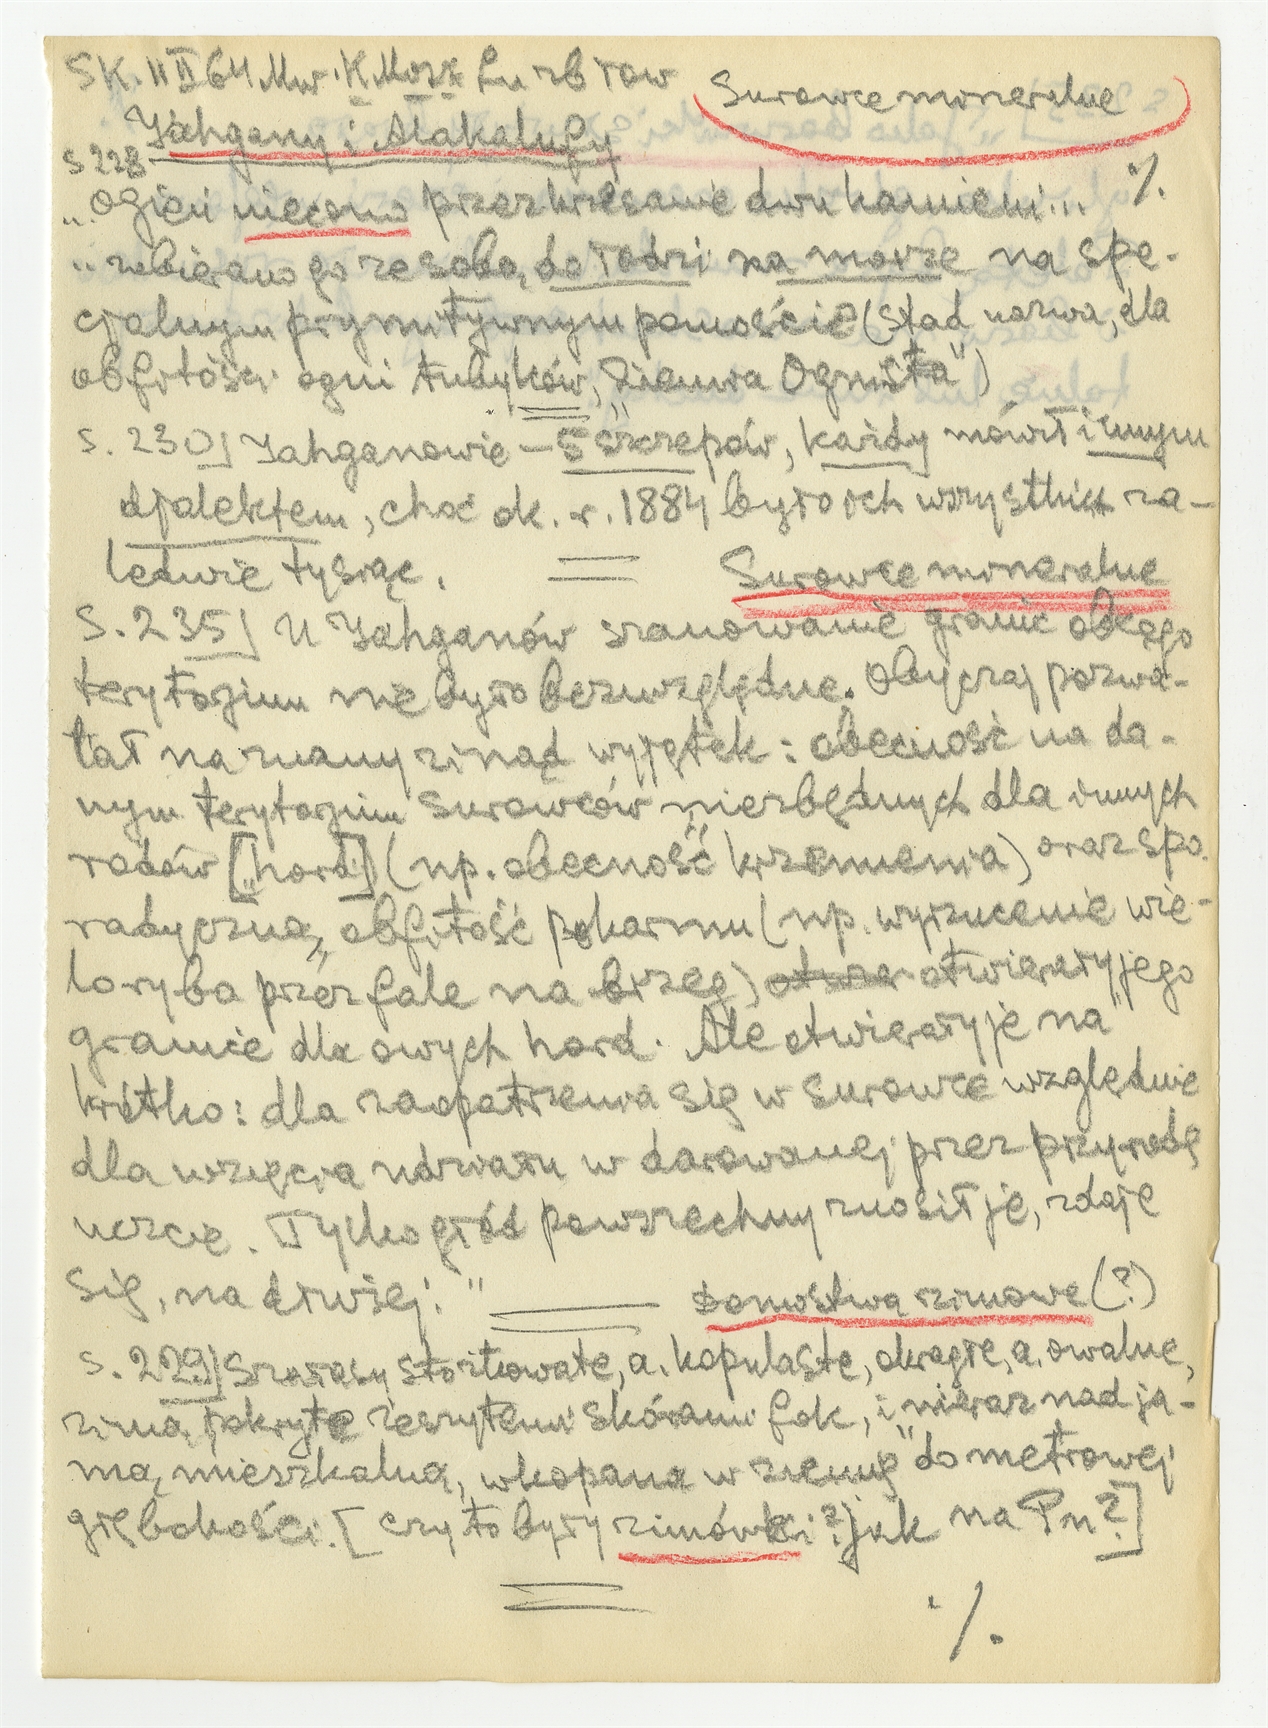 SK. 11 II 64 Mw. K. Mosz
Surowce mineralne
Jahgany i Alakalufy
s 228
./.
„Ogień niecono przez krzesanie dwu kamieni...
„zabierano go ze sobą do łodzi na morze na spe-
cjalnym prymitywnym pomoście (stąd nazwa, dla
obfitości ogni tubylców, „Ziemia Ognista")
s. 230] Jahganowie – 5 szczepów, każdy mówił innym
djalektem, choć ok. r. 1884 było ich wszystkich za-
ledwie tysiąc.
Surowce mineralne
S. 235] U Jahganów szanowanie granic obcego
terytorjum nie było bezwzględne. Obyczaj pozwa-
lał na znany zinąd wyjątek: obecność na da-
nym terytorjum surowców niezbędnych dla innych
rodów [„hord"] (np. obecność krzemienia) oraz spo-
radyczna obfitość pokarmu (np. wyrzucenie wie-
loryba przez fale na brzeg) otwierały jego
granice dla owych hord. Ale otwierały je na
krótko: dla zaopatrzenia się w surowce względnie
dla wzięcia udziału w darowanej przez przyrodę
uczcie. Tylko głód powszechny znosił je, zdaje
się, na dłużej."
Domostwa zimowe (?)
s. 229] Szałasy stożkowate, a. kopulaste, okrągłe, a. owalne,
zimą pokryte zeszytemi skórami fok, i nieraz nad ja-
mą mieszkalną, wkopaną w ziemię" do metrowej
głębokości. [czy to były zimówki? jak na Pn?]
./.